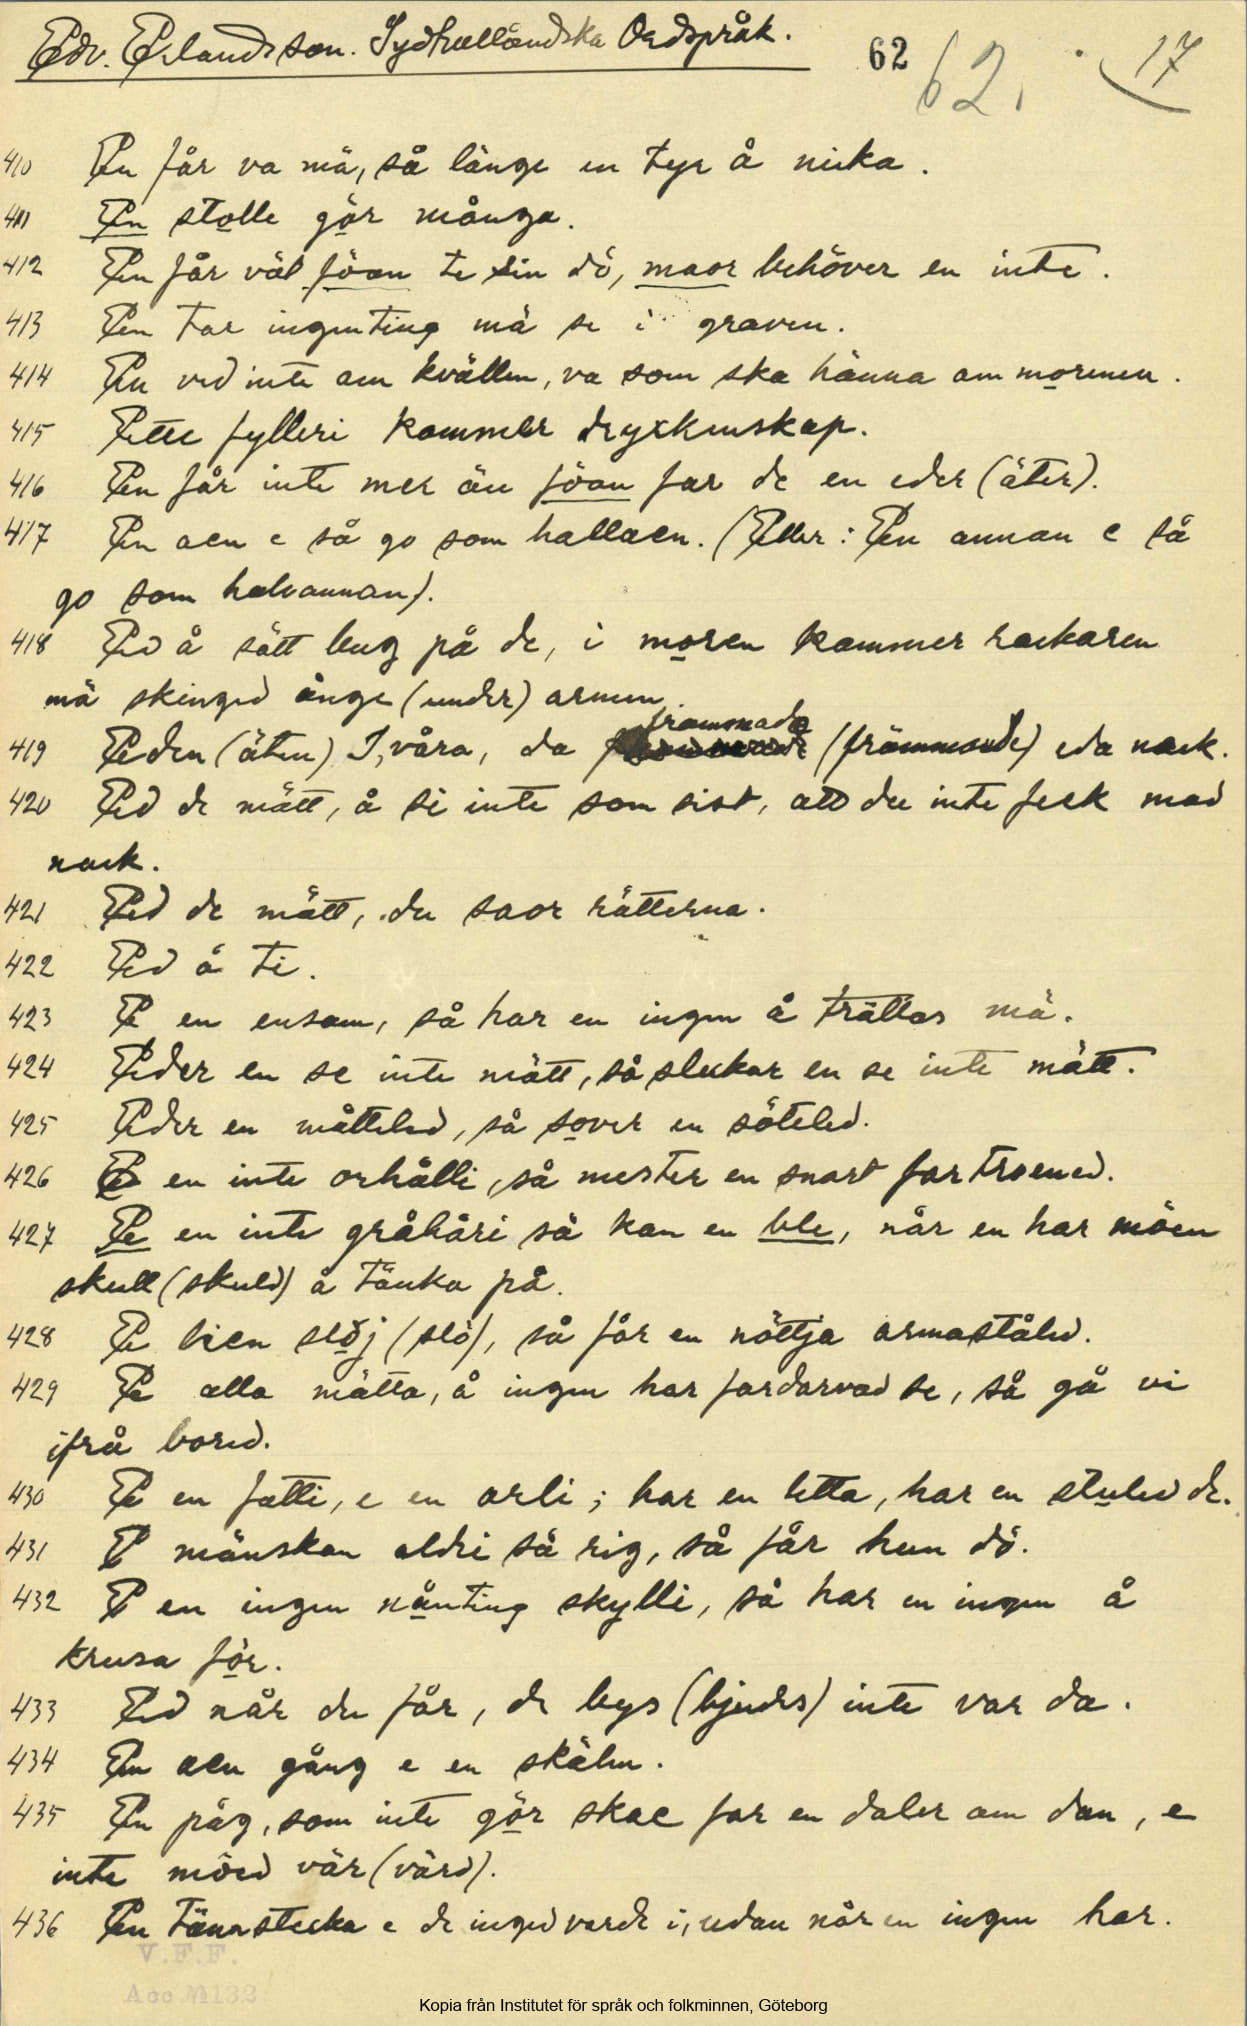 Edv. Erlandsson. Sydhalländska Ordspråk. 62 62. 17
410 En får va mä, så länge en tyr å nicka.
411 En stolle gör många.
412 En får väl föan te sin dö, maor behöver en inte.
413 En tar ingenting mä se i graven.
414 En ved inte om kvällen, va som ska hänna om morenen.
415 Ette fylleri kommer dryckenskap.
416 En får inte mer än föan for de en eder (äter).
417 En aen e så go som hallaen. (Eller: En annan e så
go som halvannan).
418 Ed å sätt leng på de, i moren kommer rackaren
mä skinged ånge (under) armen.
419 Eden (äten) I, våra, da frammade (främmande) eda nock.
420 Ed de mätt, å si inte som sist, att du inte feck mad
nock.
421 Ed de mätt, du saor rätterna.
422 Ed å ti.
423 E en ensam, så har en ingen å trättas mä.
424 Eder en se inte mätt, så slickar en se inte mätt.
425 Eder en måtteled, så sover en söteled.
426 E en inte orhålli, så mester en snart fortroened.
427 E en inte gråhåri så kan en ble, når en har möen
skull (skuld) å tänka på.
428 E bien slöj (slö), så får en nöttja armaståled.
429 E alla mätta, å ingen har fordarvad se, så gå vi
ifrå bored.
430 E en fatti, e en arli; har en letta, har en stuled de.
431 E mänskan aldri så rig, så får hun dö.
432 E en ingen nånting skylli, så har en ingen å
krusa för.
433 Ed når du får, de bys (bjudes) inte var da.
434 En aen gång e en skälm.
435 En påg, som inte gör skae for en daler om dan, e
inte möed vär (värd).
436 En tännstecka e de inged varde i, udan når en ingen har.
V.F.F.
Acc M132
Kopia från Institutet för språk och folkminnen, Göteborg